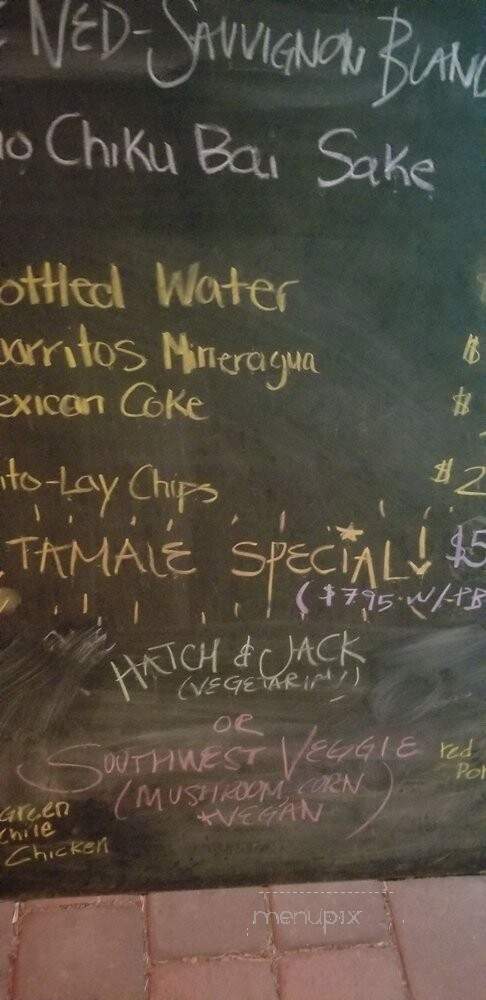 E NED-SAUVIGNON BLANC
ho Chiku Bai Sake
ottled Water $
arritos Mineragua $
exican Coke $
ito-Lay Chips $2
TAMALE SPECIAL! $5
($7.95 W/ PB
HATCH & JACK
(VEGETARIAN)
OR
SOUTHWEST VEGGIE
(MUSHROOM, CORN
+VEGAN)
red
Por
Green
Chile
Chicken
menupix